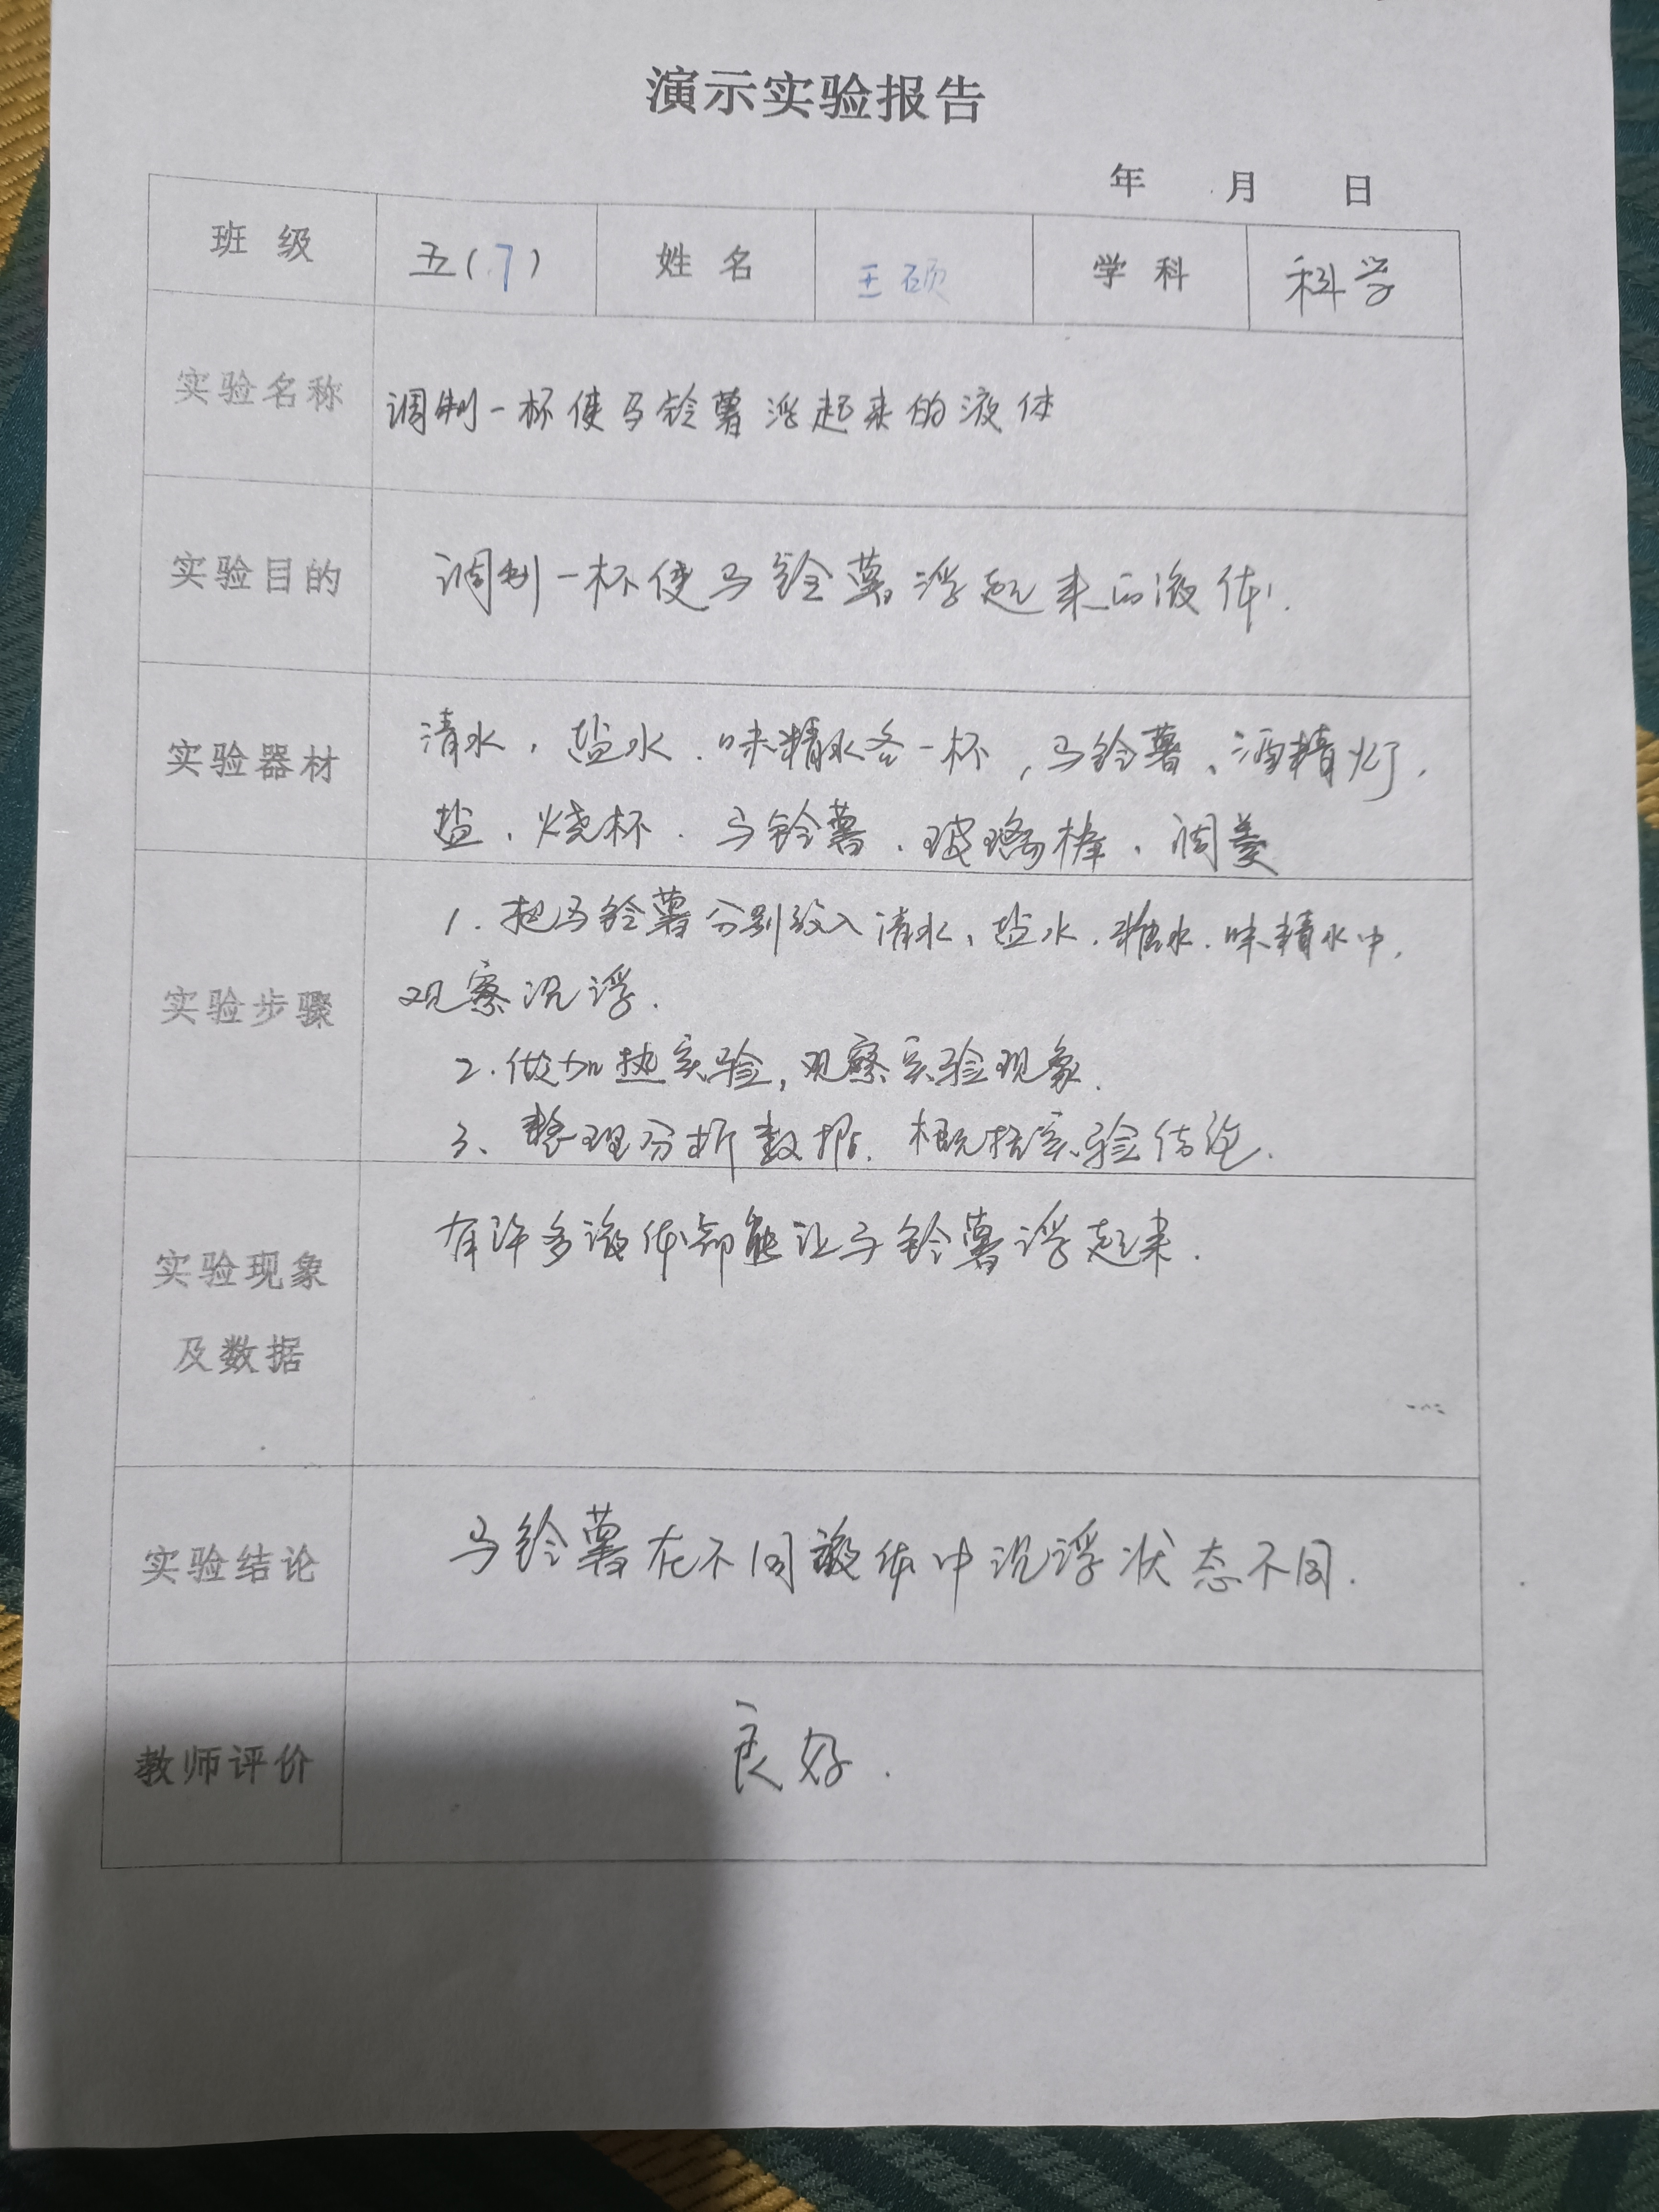 演示实验报告
年 月 日
班级 五(7) 姓名 王硕 学科 科学
实验名称 调制一杯使马铃薯浮起来的液体
实验目的 调制一杯使马铃薯浮起来的液体.
实验器材 清水,盐水.味精水各一杯,马铃薯、酒精灯,
盐、烧杯.马铃薯、玻璃棒、调羹
实验步骤 1.把马铃薯分别放入清水、盐水.糖水.味精水中,
观察沉浮.
2.做加热实验,观察实验现象.
3、整理分析数据.概括实验结论.
实验现象及数据 有许多液体都能让马铃薯浮起来.
实验结论 马铃薯在不同液体中沉浮状态不同.
教师评价 良好.